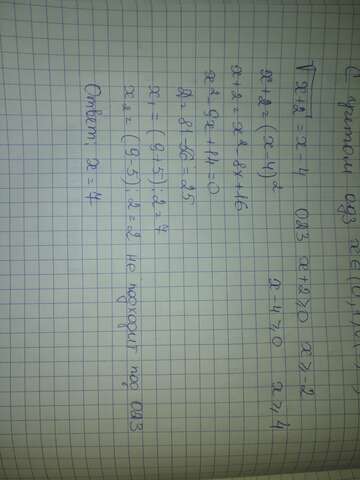 С учетом ОДЗ
√x+2 = x-4 ОДЗ x+2≥0 x≥-2
x+2=(x-4)² x-4≥0 x≥4
x+2=x²-8x+16
x²-9x+14=0
Д=81-56=25
x₁=(9+5):2=7
x₂=(9-5):2=2 не подходит под ОДЗ
Ответ: x=7